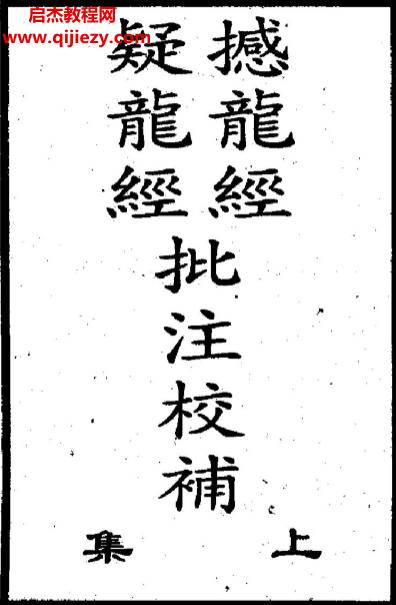 启杰教程网
www.qijiezy.com
撼龍經
疑龍經
批注校補
上集